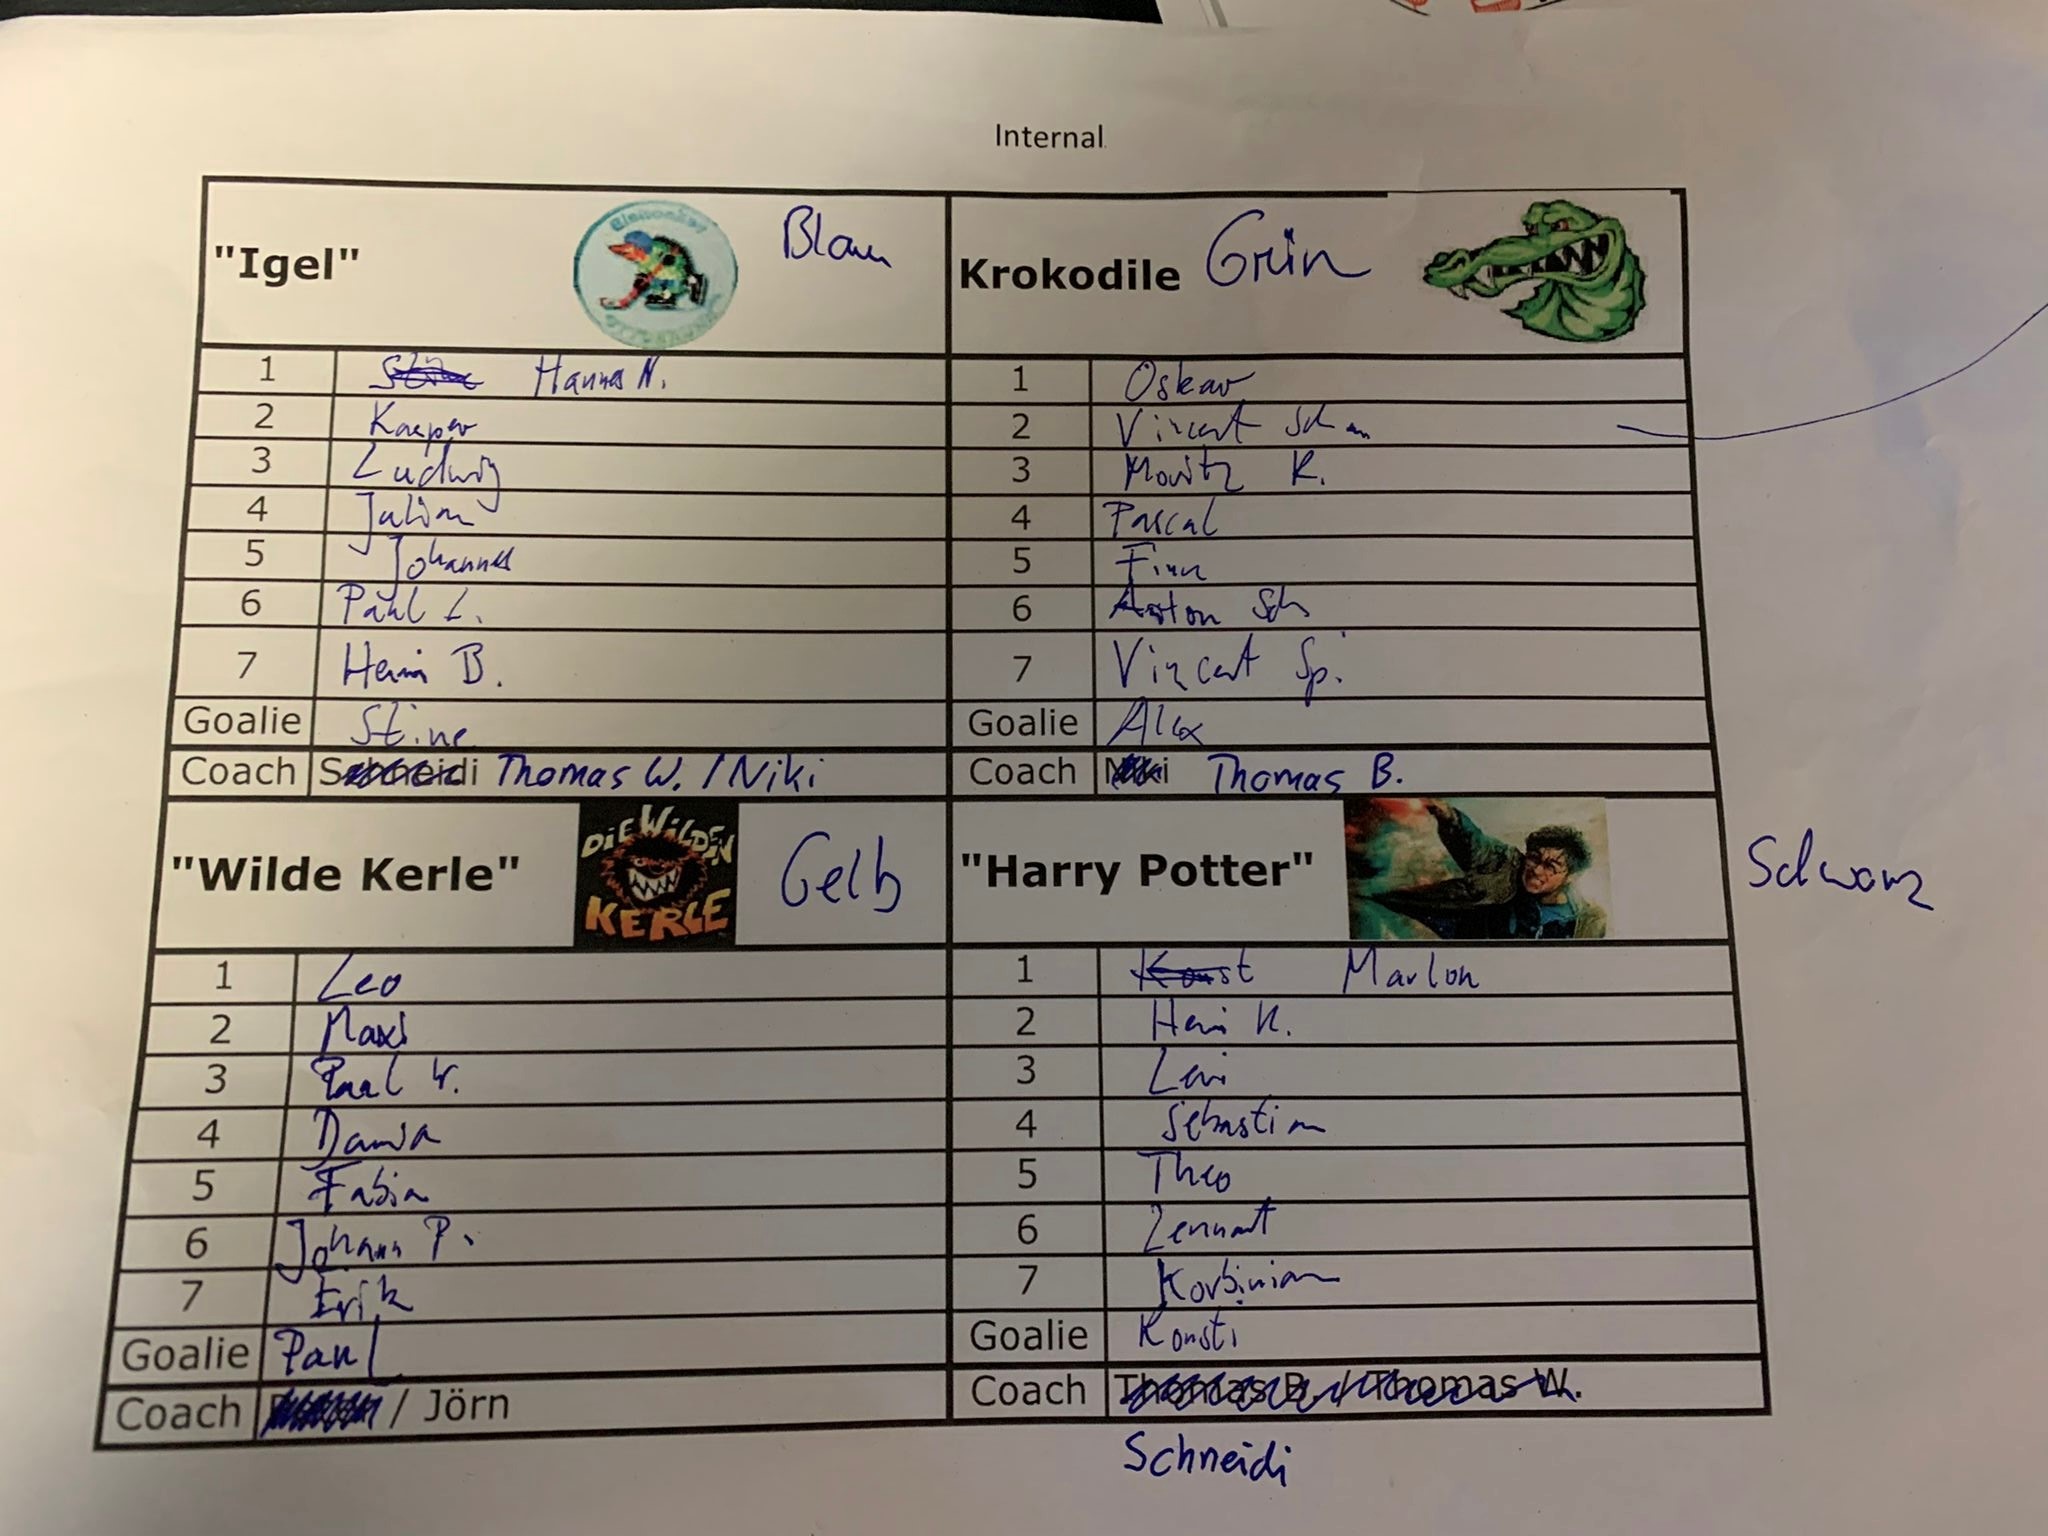 Internal
"Igel" Blau
1 Hannes N.
2 Kasper
3 Ludwig
4 Julian
5 Johannes
6 Paul L.
7 Henri B.
Goalie Stine
Coach Schneidi Thomas W. / Niki
Krokodile Grün
1 Oskar
2 Vincent
3 Moritz R.
4 Pascal
5 Finn
6 Anton Sch
7 Vincent Sp.
Goalie Alex
Coach Niki Thomas B.
"Wilde Kerle" DIE WILDEN KERLE Gelb
1 Leo
2 Maxi
3 Paul W.
4
5 Fabian
6 Johann P.
7 Erik
Goalie Paul
Coach / Jörn
"Harry Potter" Schwarz
1 Konst Marlon
2 Henri K.
3 Levi
4 Sebastian
5 Theo
6 Lennart
7 Korbinian
Goalie Konsti
Coach Thomas B. / Thomas W.
Schneidi